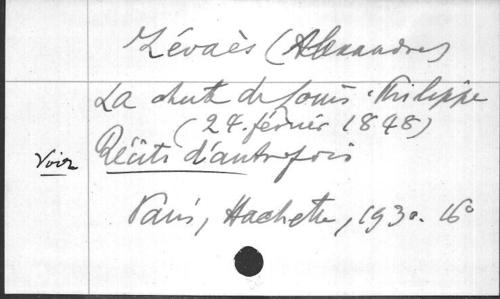 Zévaès (Alexandre)
La chute de Louis-Philippe
(24 février 1848)
Voir Récits d'autrefois
Paris, Hachette, 1930. 16°